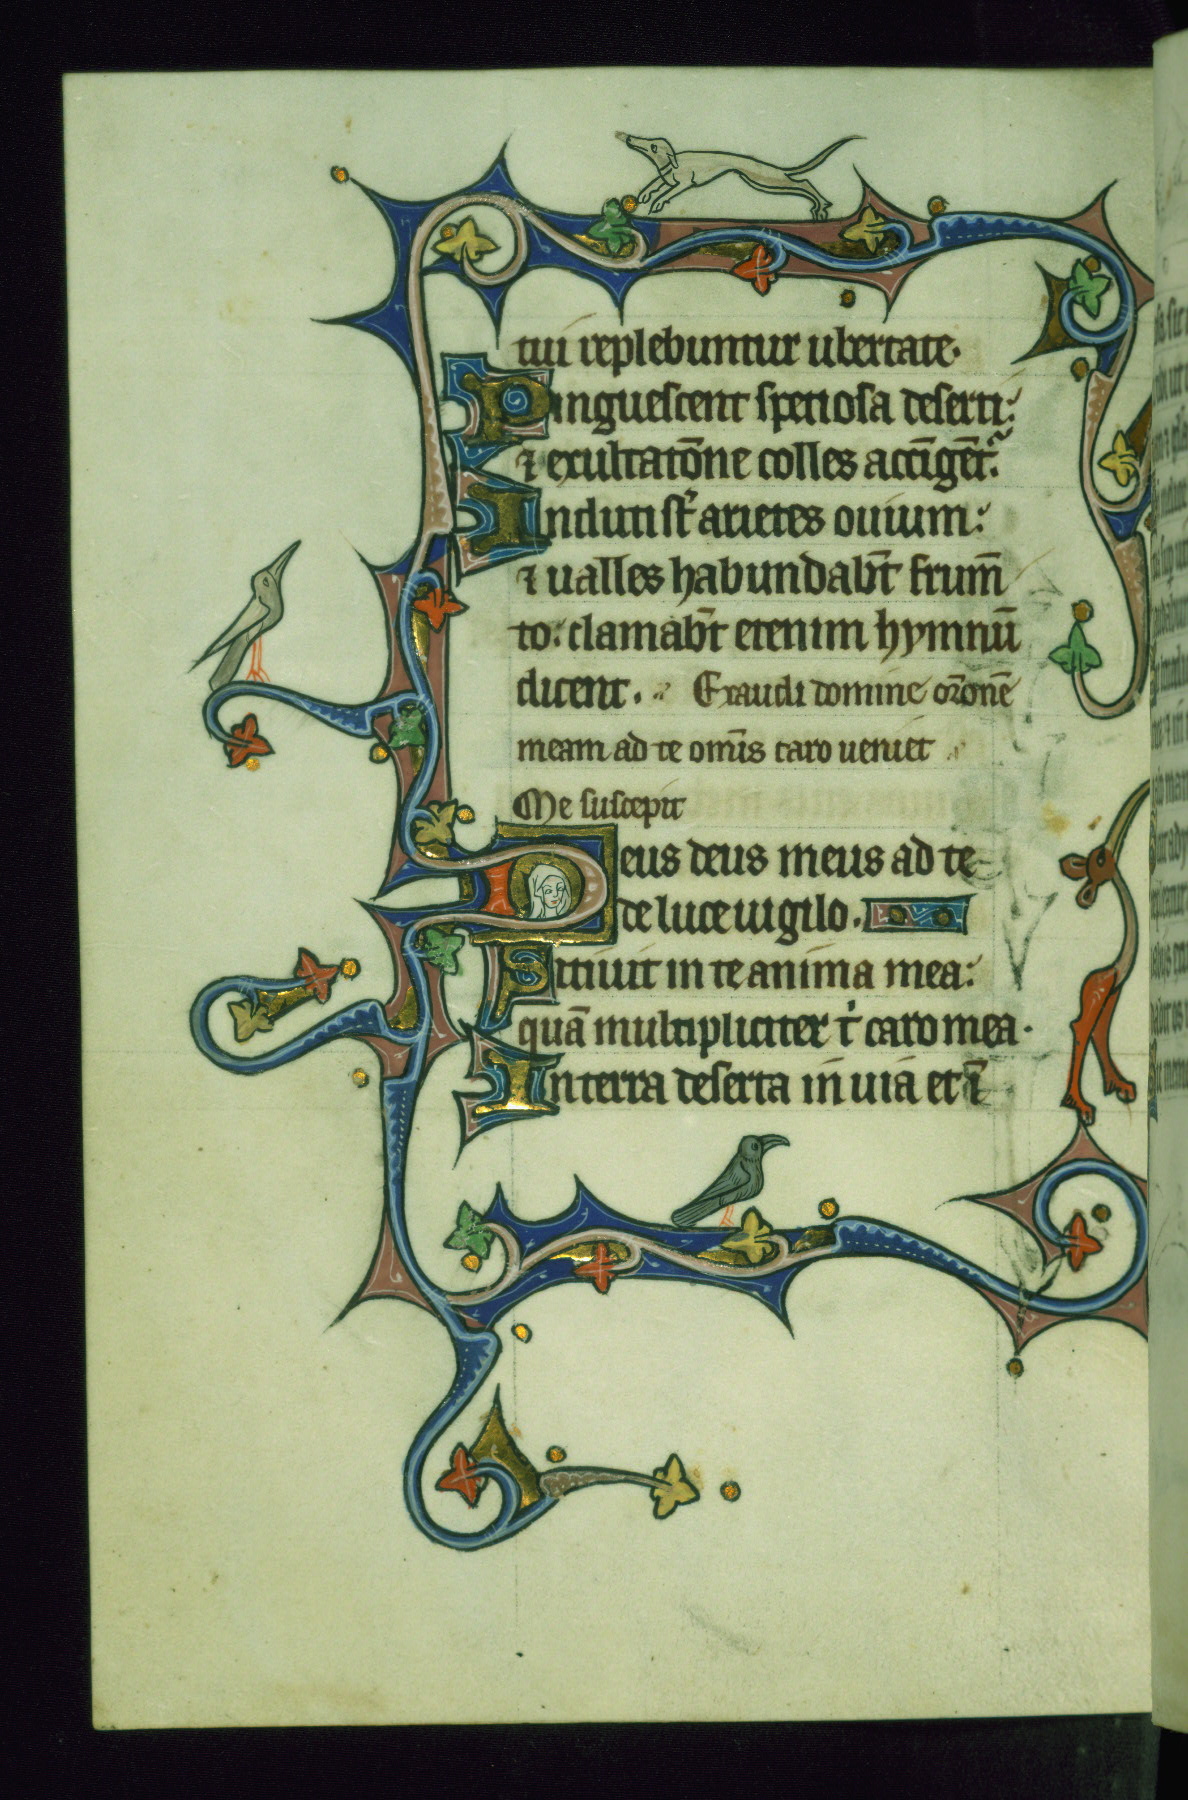 tui replebuntur ubertate.
Pinguescent spetiosa deserti:
⁊ exultatōne colles accīgēt᷑.
Induti st᷑ arietes ouium:
⁊ ualles habundab̄t frum̄
to: clamab̄t etenim hymnū
dicent. Exaudi domine or̄onē
meam ad te omīs caro ueniet
Me suscepit
Deus deus meus ad te
de luce uigilo.
Sitiuit in te anima mea:
quā multipliciter t̄ caro mea.
In terra deserta in uia et ī